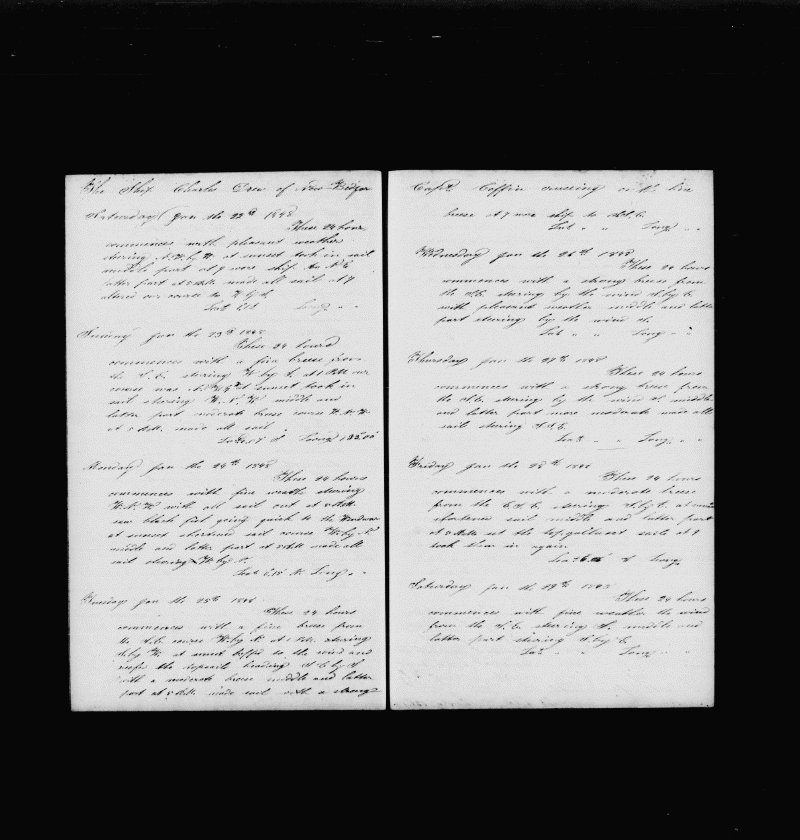 The Ship Charles Drew of New Bedford
Saturday Jan the 22nd 1848
These 24 hours
commences with pleasant weather
stering N.W. by W. at sunset took in sail
middle part at 9 wore ship to N E
latter part at 5 AM. made all sail at 7
altered our course to
Lat Long " "
Sunday Jan the 23rd 1848
These 24 hours
commences with a fine breeze from
the S. E. stering W by S. at 1 AM our
course was at sunset took in
sail stering W. N. W middle and
latter part moderate breeze course W. N. W
at 5 AM. made all sail
Lat Long
Monday Jan the 24th 1848
These 24 hours
commences with fine weather stering
W. N. W with all sail out at
saw black fish going quick to the Windward
at sunset shortened sail course W by N
middle and latter part at 5 AM made all
sail stering W by
Lat Long "
Tuesday Jan the 25th 1848
These 24 hours
commences with a fine breeze from
the S. E. course W by N at 1 PM. stering
by W. at sunset luffed to the wind and
the topsails heading S E by S
with a moderate breeze middle and latter
part at 5 AM. made sail with a strong
Capt. Coffin cruising on the line
breeze at 7 wore ship to
Lat " " Long " "
Wednesday Jan the 26th 1848
These 24 hours
commences with a strong breeze from
the S. E. stering by the wind S. by E.
with pleasant weather middle and latter
part stering by the wind
Lat " " Long " "
Thursday Jan the 27th 1848
These 24 hours
commences with a strong breeze from
the stering by the wind middle
and latter part more moderate made all
sail stering
Lat " " Long " "
Friday Jan the 28th 1848
These 24 hours
commences with a moderate breeze
from the E. S. E. stering S. by E. at sunset
shortened sail middle and latter part
at 5 AM set the top gallant sails at 9
took them in again
Lat Long
Saturday Jan the 29th 1848
These 24 hours
commences with fine weather the wind
from the S. E. stering S. middle and
latter part stering S. by E.
Lat " " Long " "